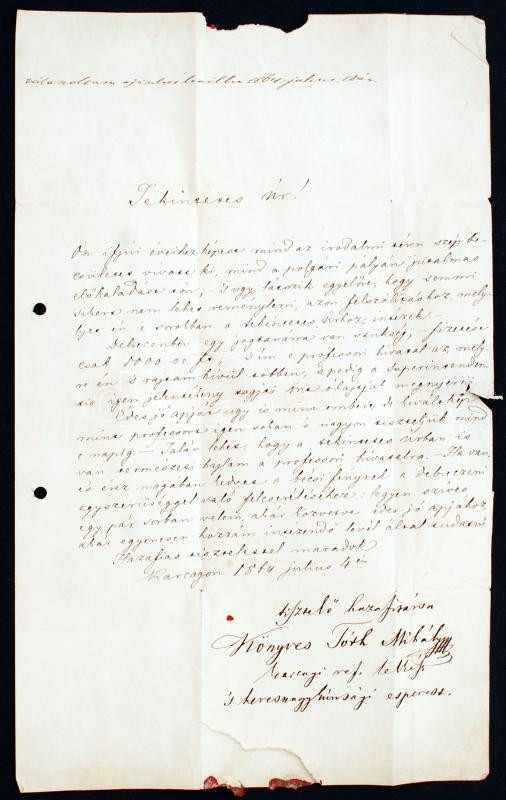 válaszoltam ajánlott levélbe 1864 július
Tekintetes Úr!
Ön ifjúi éveihez képest mind az irodalmi téren szép be-
csületet vívott ki, mind a polgári pályán jutalmas
előhaladása tőn; – s úgy látszik egyelőre, hogy semmi
sikert nem lehet reményleni, azon felszólításhoz, mely-
lyet én e sorokban a tekintetes úrhoz intézek –
Debreczenben egy jogtanárra van szükség, – fizetése
csak 1000 o. ft, – s ím e professori hivatal az, mely-
re én s rajtam kívül többen, s pedig a Superintenden-
tia igen jelentékeny tagjai önt óhajtjuk megnyerni
Édes jó apját úgy is mint embert, de kiváltkép
mint professort igen sokan s nagyon tiszteljük mind
e napig – Talán lehet, hogy a tekintetes úrban is
van természeti hajlam a professori hivatalra. – Ha van,
és érez magában kedvet a bécsi fénynek a debreczeni
egyszerűséggel való felcseréléséhez: legyen szíves
egy pár sorban velem, akár közvetve édes jó apjához,
akár egyenesen hozzám intézendő levél által tudatni
Hazafias tisztelettel maradok
Karcagon 1864 július 4én
tisztelő hazafitársa
Könyves Tóth Mihály
karcagi ref. lelkész
s hevesnagykúnsági esperest.